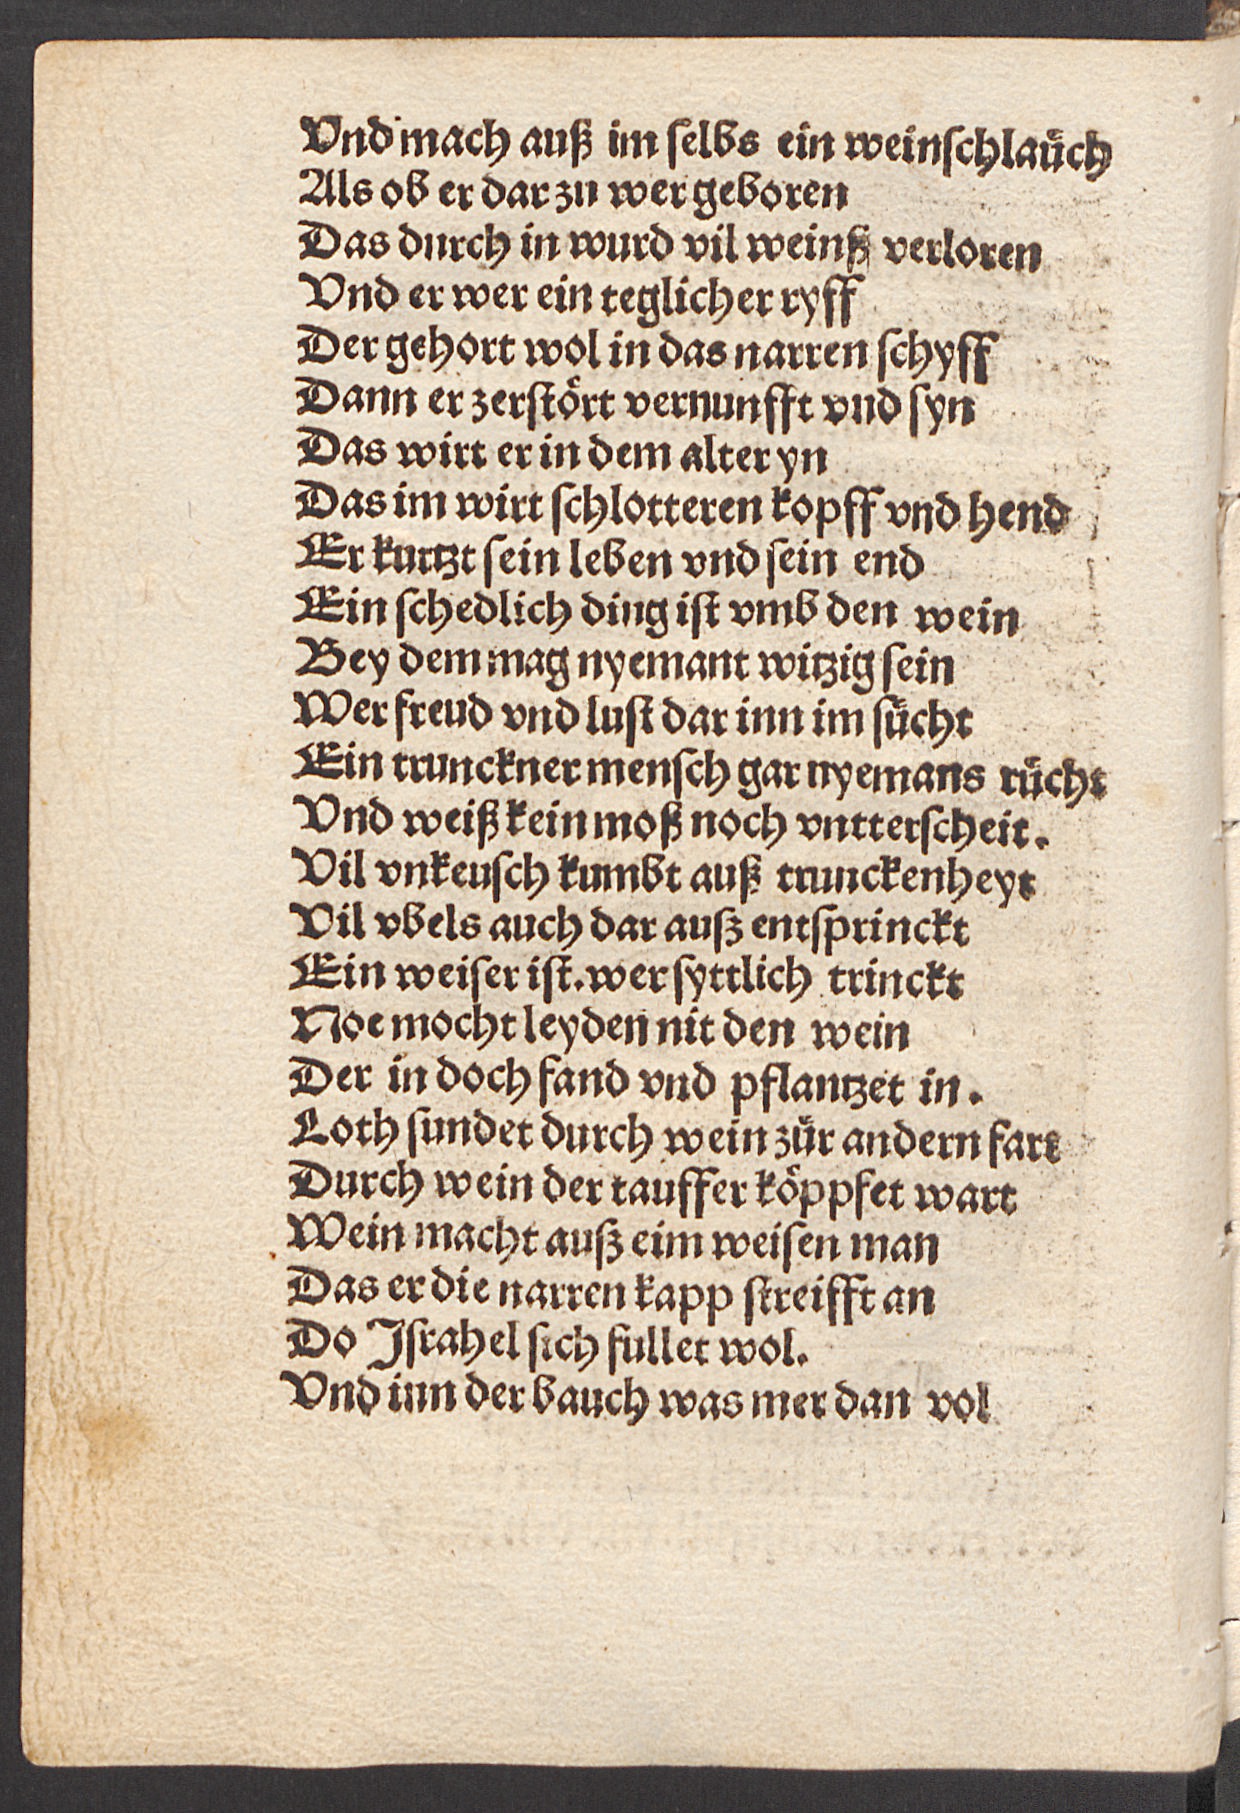 Vnd mach auß im ſelbs ein weinſchlaűch
Als ob er dar zu wer geboren
Das durch in wurd vil weinß verloren
Vnd er wer ein teglicher ryff
Der gehort wol in das narren ſchyff
Dann er zerſtört vernunfft vnd ſyn
Das wirt er in dem alter yn
Das im wirt ſchlotteren kopff vnd hend
Er kurtzt ſein leben vnd ſein end
Ein ſchedlich ding iſt vmb den wein
Bey dem mag nyemant witzig ſein
Wer freud vnd luſt dar inn im ſücht
Ein trunckner menſch gar nyemans rücht
Vnd weiß kein moß noch vntterſcheit.
Vil vnkeuſch kumbt auß trunckenheyt
Vil vbels auch dar auß entſprinckt
Ein weiſer iſt. wer ſyttlich trinckt
Noe mocht leyden nit den wein
Der in doch fand vnd pflantzet in.
Loth ſundet durch wein zür andern fart
Durch wein der tauffer köppfet wart
Wein macht auß eim weiſen man
Das er die narren kapp ſtreifft an
Do Jſrahel ſich fullet wol.
Vnd inn der bauch was mer dan vol